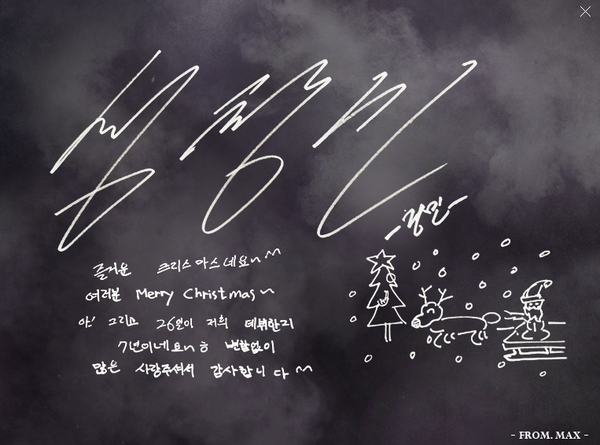 심창민
-창민-
즐거운 크리스마스네요~^^
여러분 Merry Christmas~
아! 그리고 26일이 저희 데뷔한지
7년이네요~ㅎ 변함없이
많은 사랑주셔서 감사합니다^^
- FROM. MAX -